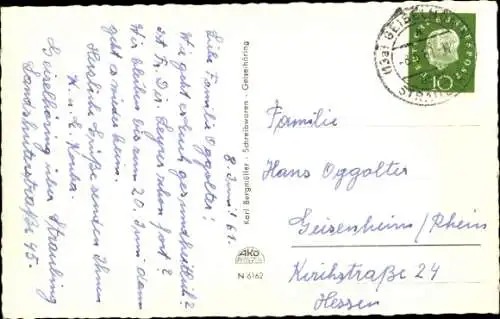 8. Juni 61.
Liebe Familie Oggolter!
Wie geht es Euch gesundheitlich?
Ist Fr. Dir. schon fort?
Wir bleiben bis zum 20. Juni dann
geht es wieder heim.
Herzliche Grüße senden Ihnen
H. u. L.
Geiselhöring über Straubing
Landshuterstraße 45.
Karl Bergmüller - Schreibwaren - Geiselhöring
AKO
N 6162
(13a) GEISELH
STRAU
DEUTSCHE BUNDESPOST
10
Familie
Hans Oggolter
Geisenheim/Rhein
Kirchstraße 24
Hessen